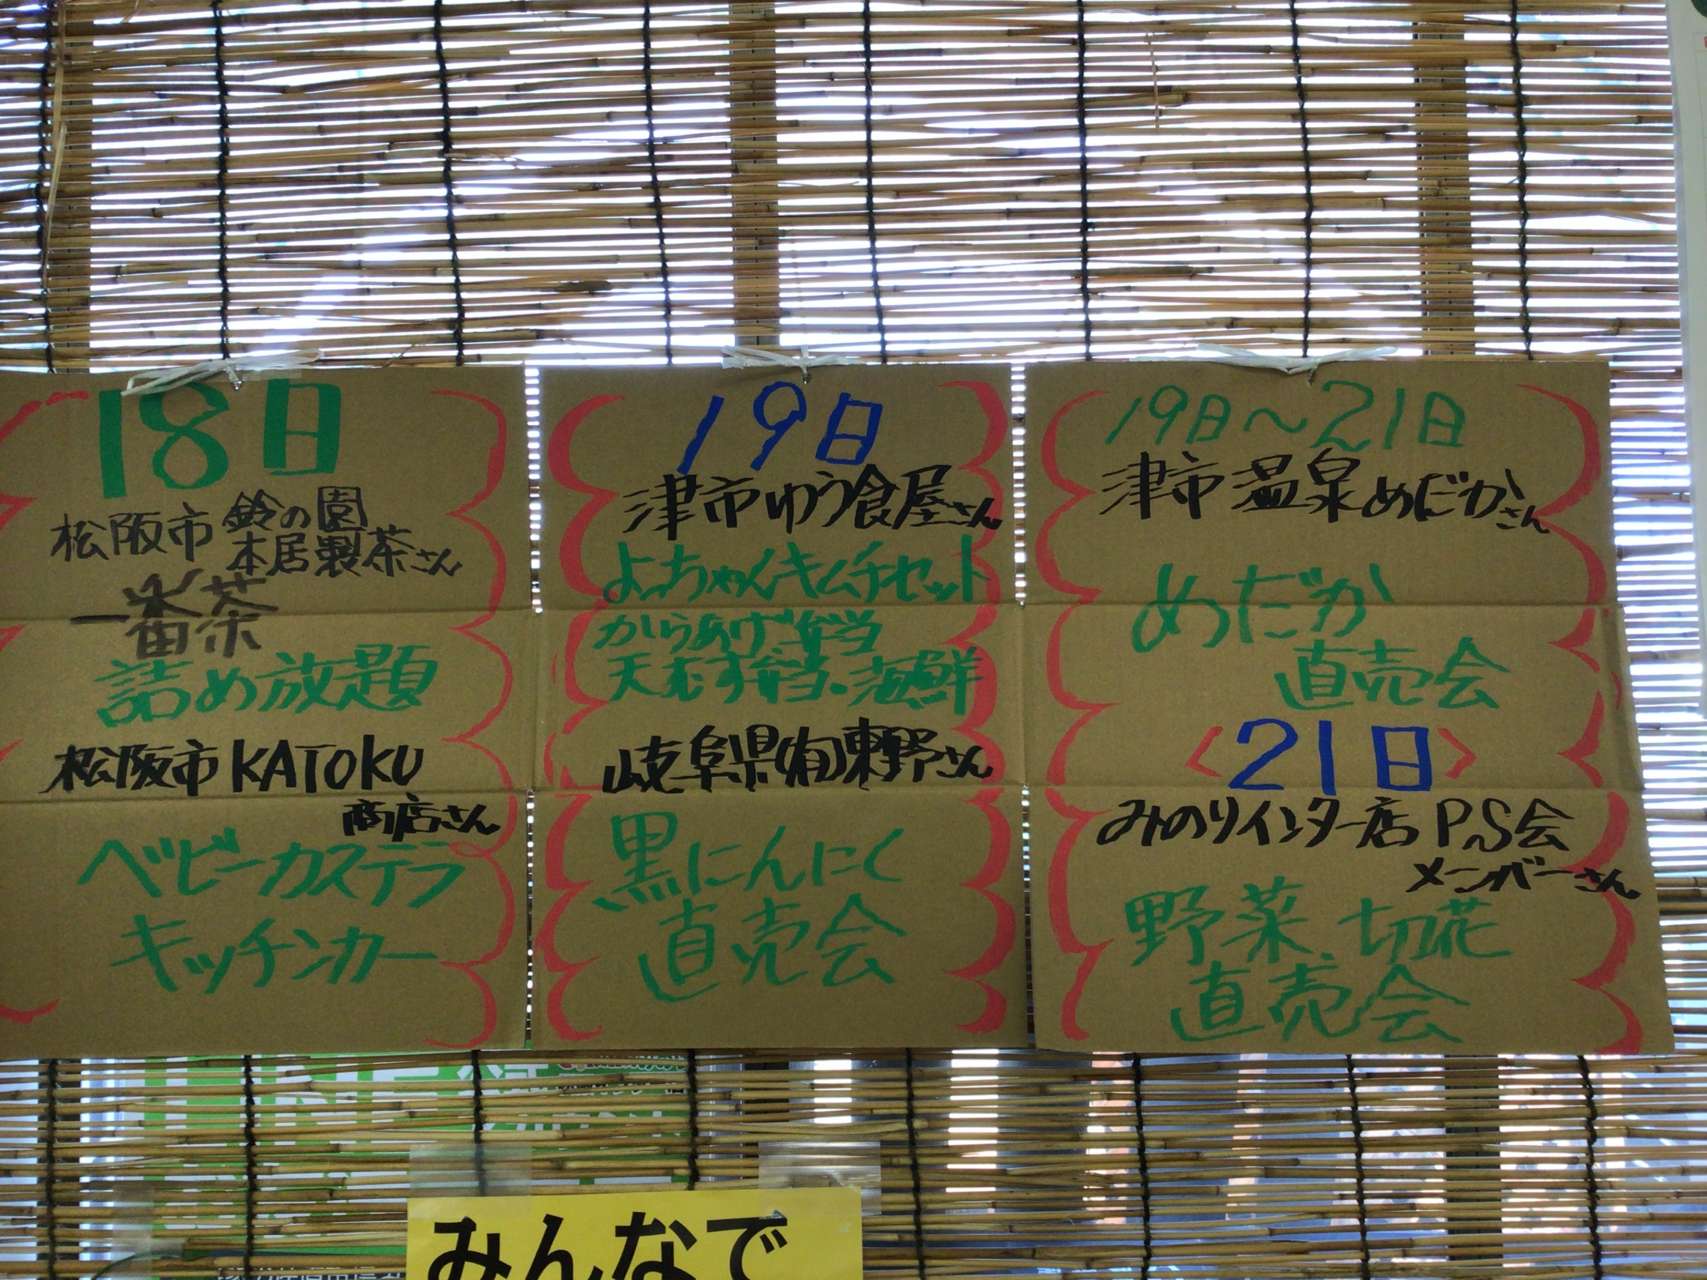 18日
松阪市 鈴の園
本居製茶さん
一番茶
詰め放題
松阪市KATOKU
商店さん
ベビーカステラ
キッチンカー
19日
津市ゆう食屋さん
よっちゃんキムチセット
からあげ弁当
天むす弁当。海鮮
岐阜県(有)東野さん
黒にんにく
直売会
19日～21日
津市温泉めだかさん
めだか
直売会
<21日>
みのりインター店P.S会
メンバーさん
野菜、切花
直売会
みんなで